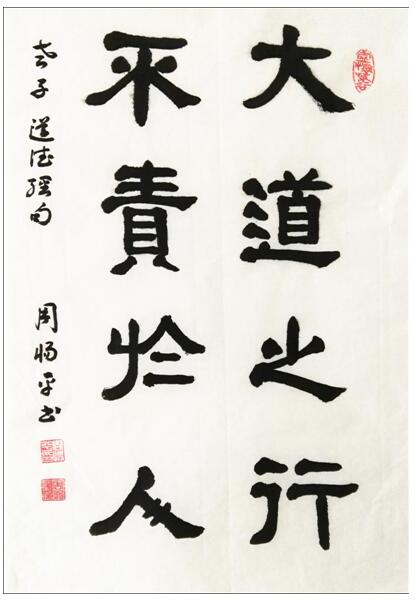 大道之行
不責於人
老子道德經句
周平书